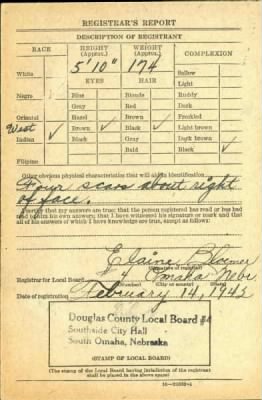 REGISTRAR'S REPORT
DESCRIPTION OF REGISTRANT
RACE HEIGHT (Approx.) WEIGHT (Approx.) COMPLEXION
5' 10" 174
White Sallow
EYES HAIR Light
Negro Blue Blonde Ruddy
Gray Red Dark
Oriental Hazel Brown Freckled
West Brown ✓ Black ✓ Light brown
Indian ✓ Black Gray Dark brown ✓
Bald Black
Filipino
Other obvious physical characteristics that will aid in identification
Four scars about right
of face.
I certify that my answers are true; that the person registered has read or has had
read to him his own answers; that I have witnessed his signature or mark and that
all of his answers of which I have knowledge are true, except as follows:
Elaine
(Signature of registrar)
Registrar for Local Board 4 Omaha Nebr
(Number) (City or county) (State)
Date of registration February 14, 1942
Douglas County Local Board #4
Southside City Hall
South Omaha, Nebraska
(STAMP OF LOCAL BOARD)
(The stamp of the Local Board having jurisdiction of the registrant
shall be placed in the above space)